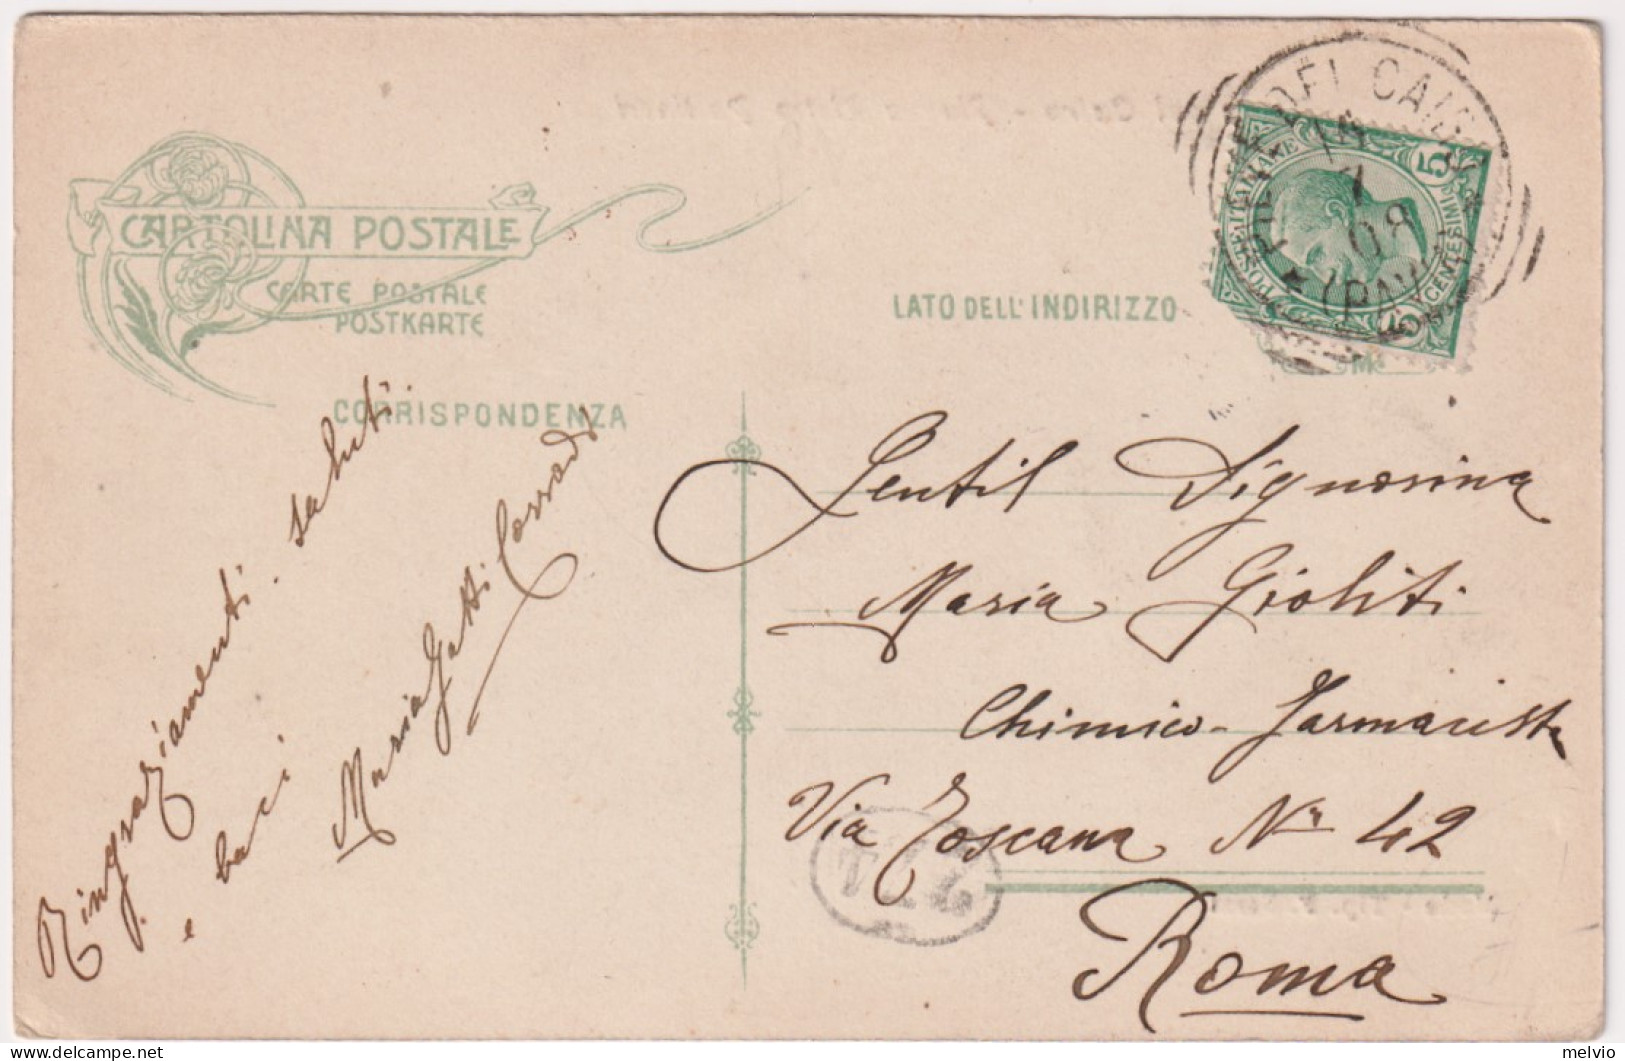 CARTOLINA POSTALE
CARTE POSTALE
POSTKARTE
LATO DELL'INDIRIZZO
CORRISPONDENZA
PIEVE DEL CAIRO
7
08
(PAVIA)
POSTE ITALIANE
5
CENTESIMI
5
Ringraziamenti. saluti.
e baci
Maria Gatti Corrado
Gentil Signorina
Maria Gioliti
Chimico-Farmacista
Via Toscana Nr 42
Roma
delcampe.net
melvio